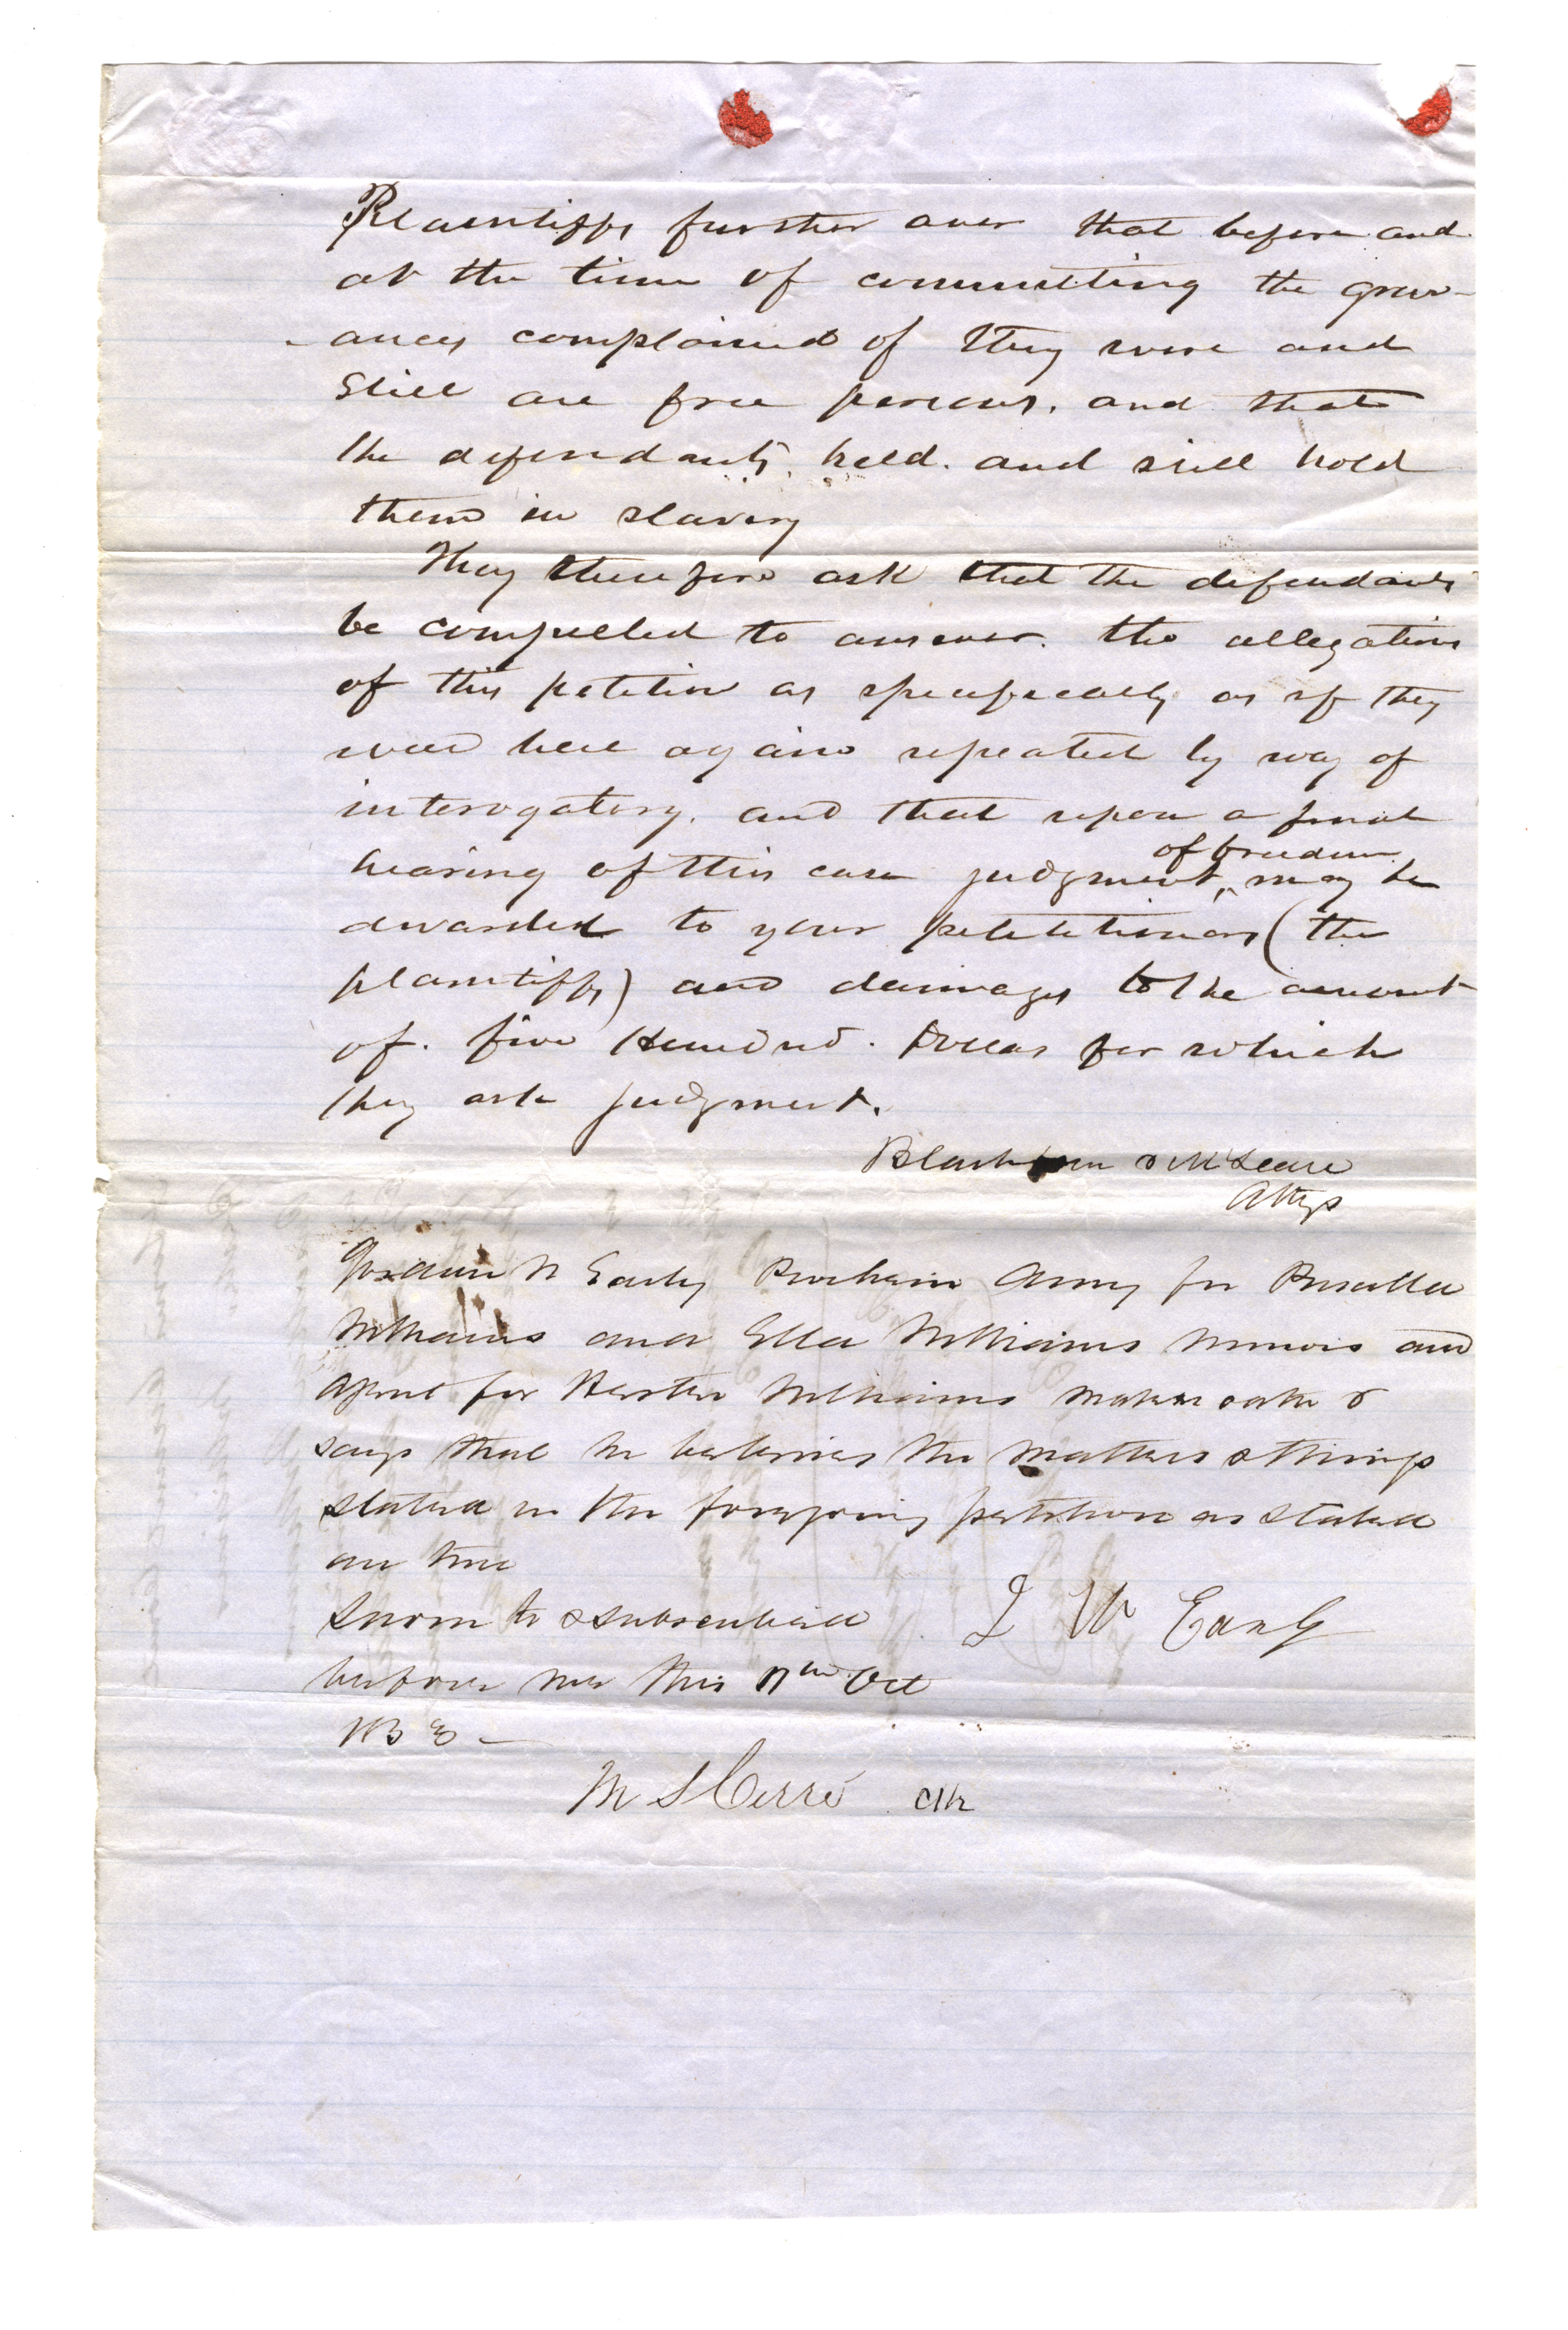 Plaintiffs further aver that before and
at the time of committing the griev-
-ances complained of they were and
Still are free persons, and that
the defendants, held. and still hold
them in slavery
They therefore ask that the defendants
be compelled to answer. the allegations
of this petition as specifically as if they
were here again repeated by way of
interogatory. and that upon a final
of freedom
hearing of this case judgment ^ may be
awarded to your petetitioners (the
plaintiffs) and damages to the amount
of. five Hundred. Dollars for which
they ask judgment.
Blackburn & McLeare
Attys
Jordan W Early Prochein Amy for Priscilla
Williams and Ella Williams minors and
agent for Hester Williams makes oath &
says that he believes the matters & things
stated in the foregoing petition as stated
are true
Sworn to & subscribed J W Early
before me this 17th Oct
M S Cerré Clk